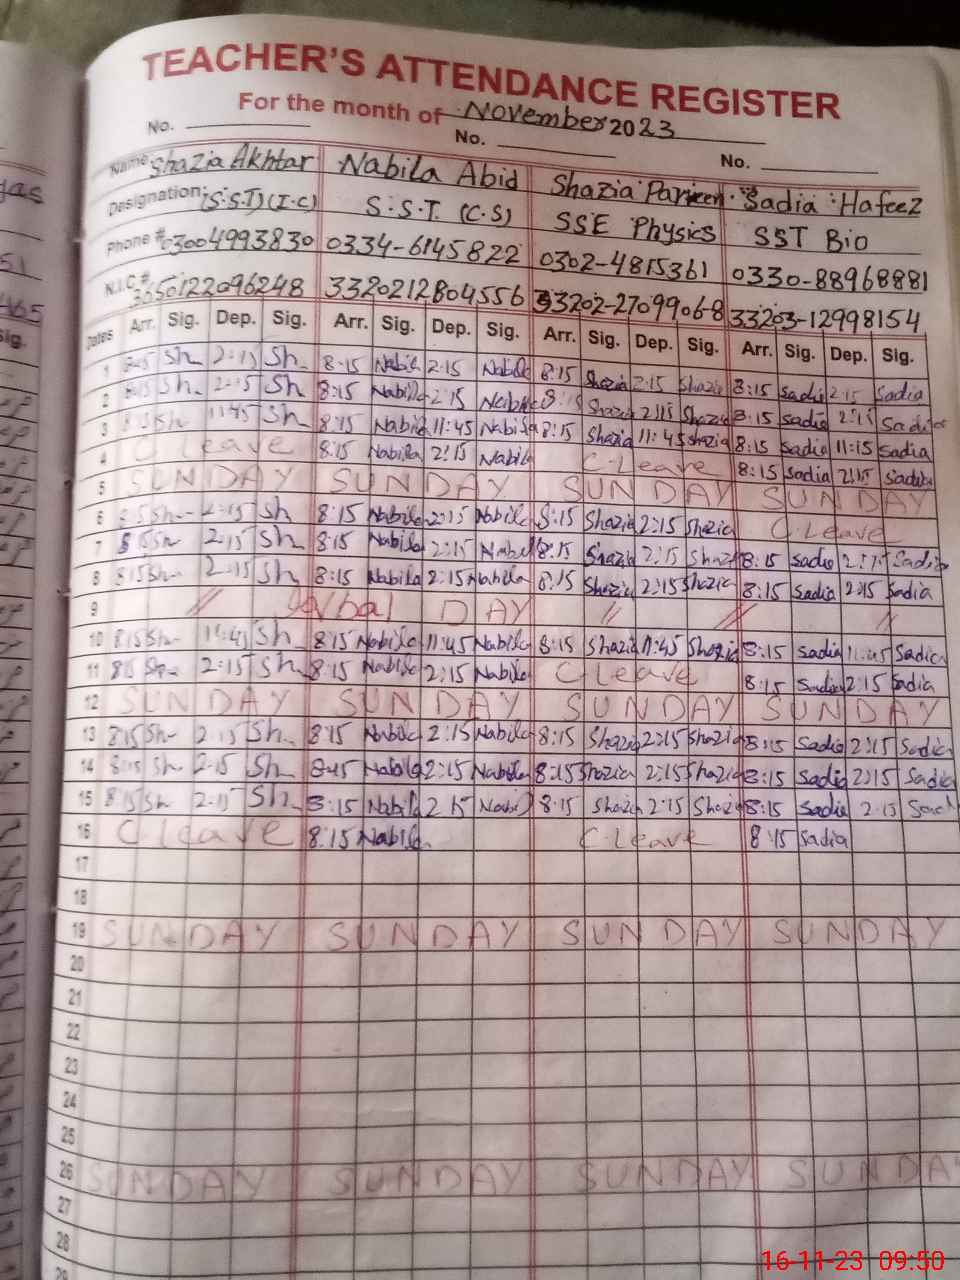 TEACHER'S ATTENDANCE REGISTER
For the month of November 2023
No. No. No.
Name Shazia Akhtar Nabila Abid Shazia Parveen Sadia Hafeez
Designation (S.S.T) (I.C) S.S.T. (C.S) SSE Physics SST Bio
Phone # 03004993830 0334-6145822 0302-4815361 0330-88968881
N.I.C # 3320212804556 33202-2709906-8 33203-12998154
Dates Arr. Sig. Dep. Sig. Arr. Sig. Dep. Sig. Arr. Sig. Dep. Sig. Arr. Sig. Dep. Sig.
1 Sh 2:15 Sh 8:15 Nabila 2:15 Nabila 8:15 Shazia 2:15 Shazia 8:15 Sadia 2:15 Sadia
2 8:15 Sh 2:15 Sh 8:15 Nabila 2:15 Nabila 8:15 Shazia 2:15 Shazia 8:15 Sadia 2:15 Sadia
3 8:15 Sh 11:45 Sh 8:15 Nabila 11:45 Nabila 8:15 Shazia 11:45 Shazia 8:15 Sadia 11:15 Sadia
4 C Leave 8:15 Nabila 2:15 Nabila C Leave 8:15 Sadia 2:15 Sadia
5 SUNDAY SUNDAY SUNDAY SUNDAY
6 8:15 Sh 2:15 Sh 8:15 Nabila 2:15 Nabila 8:15 Shazia 2:15 Shazia C Leave
7 8:15 Sh 2:15 Sh 8:15 Nabila 2:15 Nabila 8:15 Shazia 2:15 Shazia 8:15 Sadia 2:15 Sadia
8 8:15 Sh 2:15 Sh 8:15 Nabila 2:15 Nabila 8:15 Shazia 2:15 Shazia 8:15 Sadia 2:15 Sadia
9 // DAY // // //
10 8:15 Sh 11:45 Sh 8:15 Nabila 11:45 Nabila 8:15 Shazia 11:45 Shazia 8:15 Sadia 11:45 Sadia
11 8:15 Sh 2:15 Sh 8:15 Nabila 2:15 Nabila C Leave 8:15 Sadia 2:15 Sadia
12 SUNDAY SUNDAY SUNDAY SUNDAY
13 8:15 Sh 2:15 Sh 8:15 Nabila 2:15 Nabila 8:15 Shazia 2:15 Shazia 8:15 Sadia 2:15 Sadia
14 8:15 Sh 2:15 Sh 8:15 Nabila 2:15 Nabila 8:15 Shazia 2:15 Shazia 8:15 Sadia 2:15 Sadia
15 8:15 Sh 2:15 Sh 8:15 Nabila 2:15 Nabila 8:15 Shazia 2:15 Shazia 8:15 Sadia 2:15 Sadia
16 C Leave 8:15 Nabila C Leave 8:15 Sadia
17
18
19 SUNDAY SUNDAY SUNDAY SUNDAY
20
21
22
23
24
25
26 SUNDAY SUNDAY SUNDAY SUNDAY
27
28
29
16-11-23 09:50